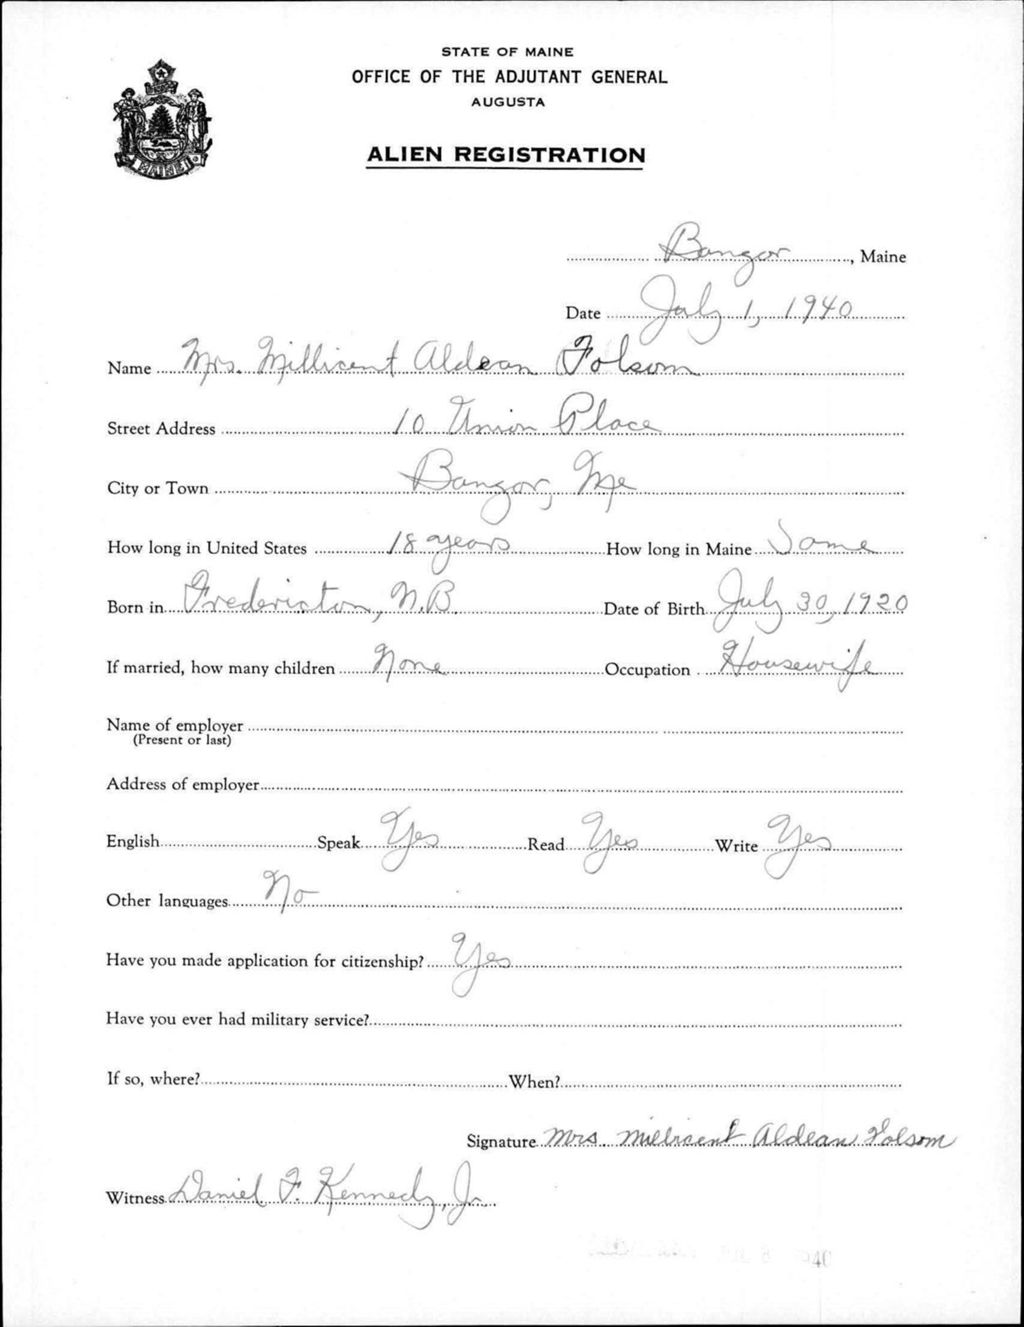 STATE OF MAINE
OFFICE OF THE ADJUTANT GENERAL
AUGUSTA
ALIEN REGISTRATION
MAINE
Bangor, Maine
Date July 1, 1940
Name Mrs. Millicent Aldean Folsom
Street Address 10 Union Place
City or Town Bangor, Me
How long in United States 18 years How long in Maine Same
Born in Fredericton, N.B. Date of Birth July 30, 1920
If married, how many children None Occupation Housewife
Name of employer
(Present or last)
Address of employer
English Speak Yes Read Yes Write Yes
Other languages No
Have you made application for citizenship? Yes
Have you ever had military service?
If so, where? When?
Signature Mrs. Millicent Aldean Folsom
Witness Daniel F. Kennedy, Jr.